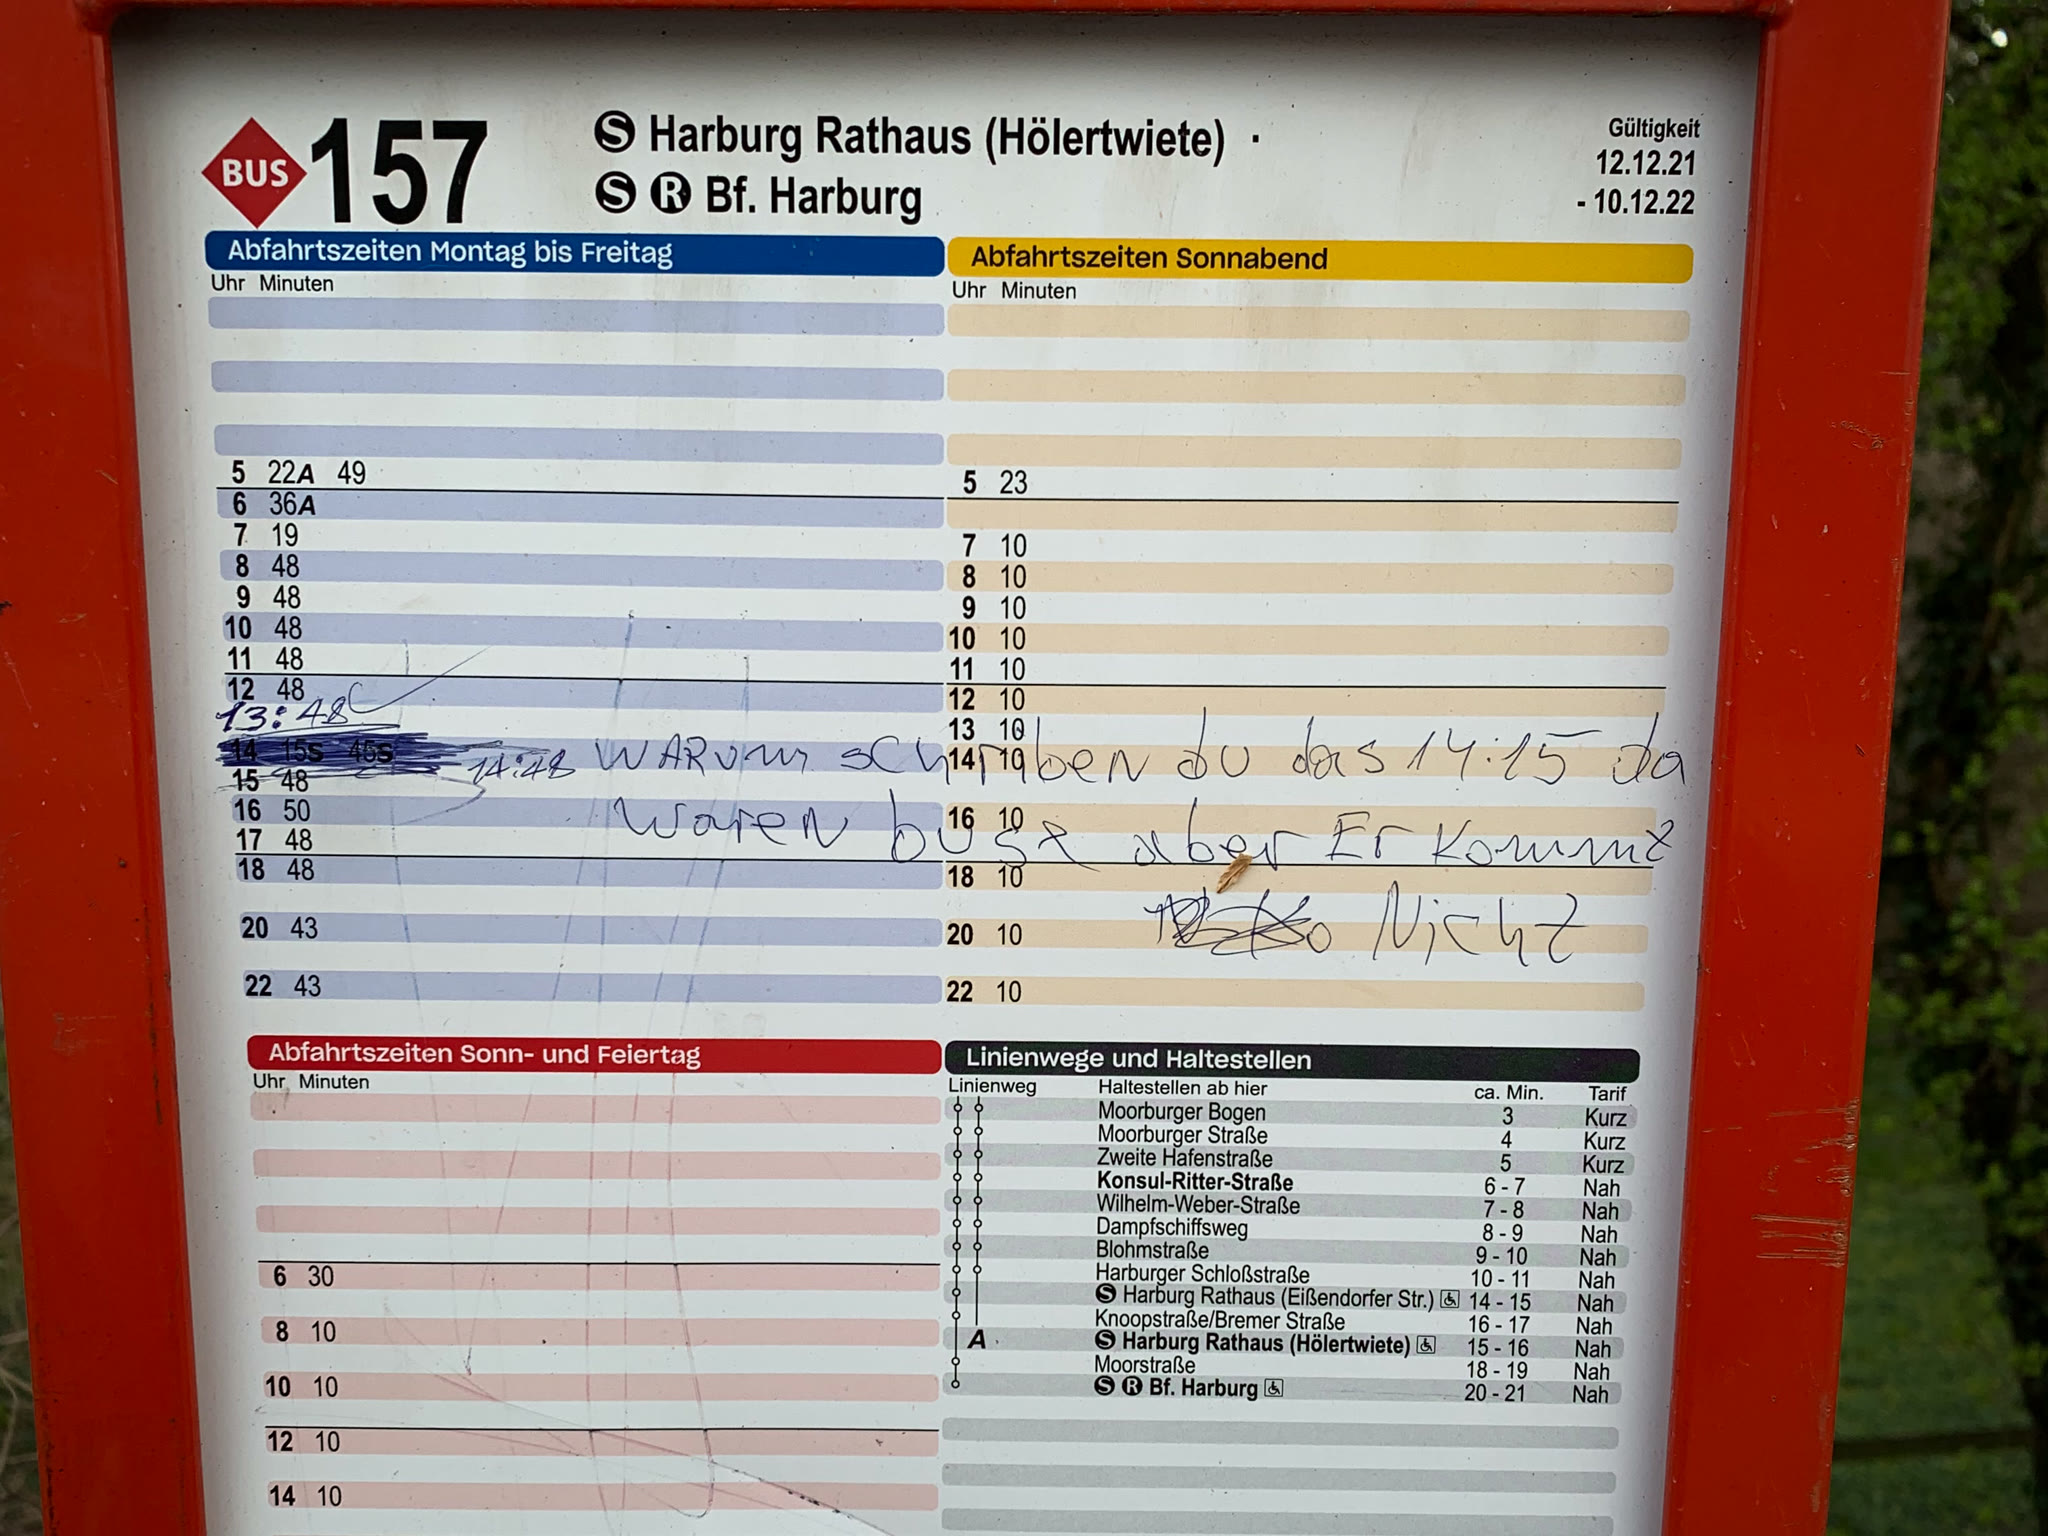 BUS 157
S Harburg Rathaus (Hölertwiete) ·
S R Bf. Harburg
Gültigkeit
12.12.21
- 10.12.22
Abfahrtszeiten Montag bis Freitag
Uhr Minuten
5 22A 49
6 36A
7 19
8 48
9 48
10 48
11 48
12 48
13:48
14 15s 45s 14:48
15 48
16 50
17 48
18 48
20 43
22 43
Abfahrtszeiten Sonnabend
Uhr Minuten
5 23
7 10
8 10
9 10
10 10
11 10
12 10
13 10
14 10
16 10
18 10
20 10
22 10
WARum du das 14:15 da
waren aber Er kommt
Nicht
Abfahrtszeiten Sonn- und Feiertag
Uhr Minuten
6 30
8 10
10 10
12 10
14 10
Linienwege und Haltestellen
Linienweg Haltestellen ab hier ca. Min. Tarif
Moorburger Bogen 3 Kurz
Moorburger Straße 4 Kurz
Zweite Hafenstraße 5 Kurz
Konsul-Ritter-Straße 6 - 7 Nah
Wilhelm-Weber-Straße 7 - 8 Nah
Dampfschiffsweg 8 - 9 Nah
Blohmstraße 9 - 10 Nah
Harburger Schloßstraße 10 - 11 Nah
S Harburg Rathaus (Eißendorfer Str.) 14 - 15 Nah
Knoopstraße/Bremer Straße 16 - 17 Nah
A S Harburg Rathaus (Hölertwiete) 15 - 16 Nah
Moorstraße 18 - 19 Nah
S R Bf. Harburg 20 - 21 Nah